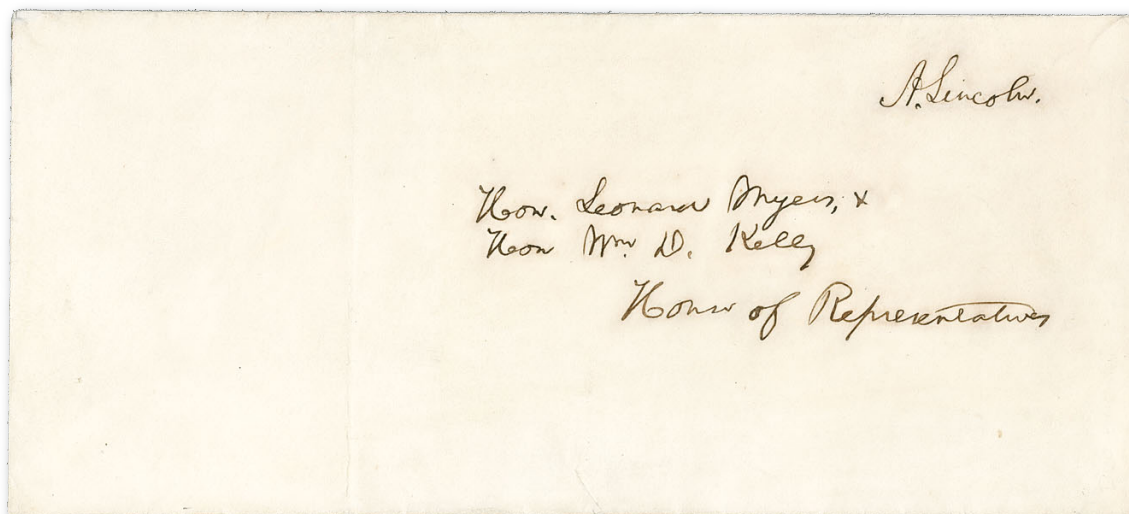 A. Lincoln.
Hon. Leonard Myers, &
Hon Wm. D. Kelly
House of Representatives